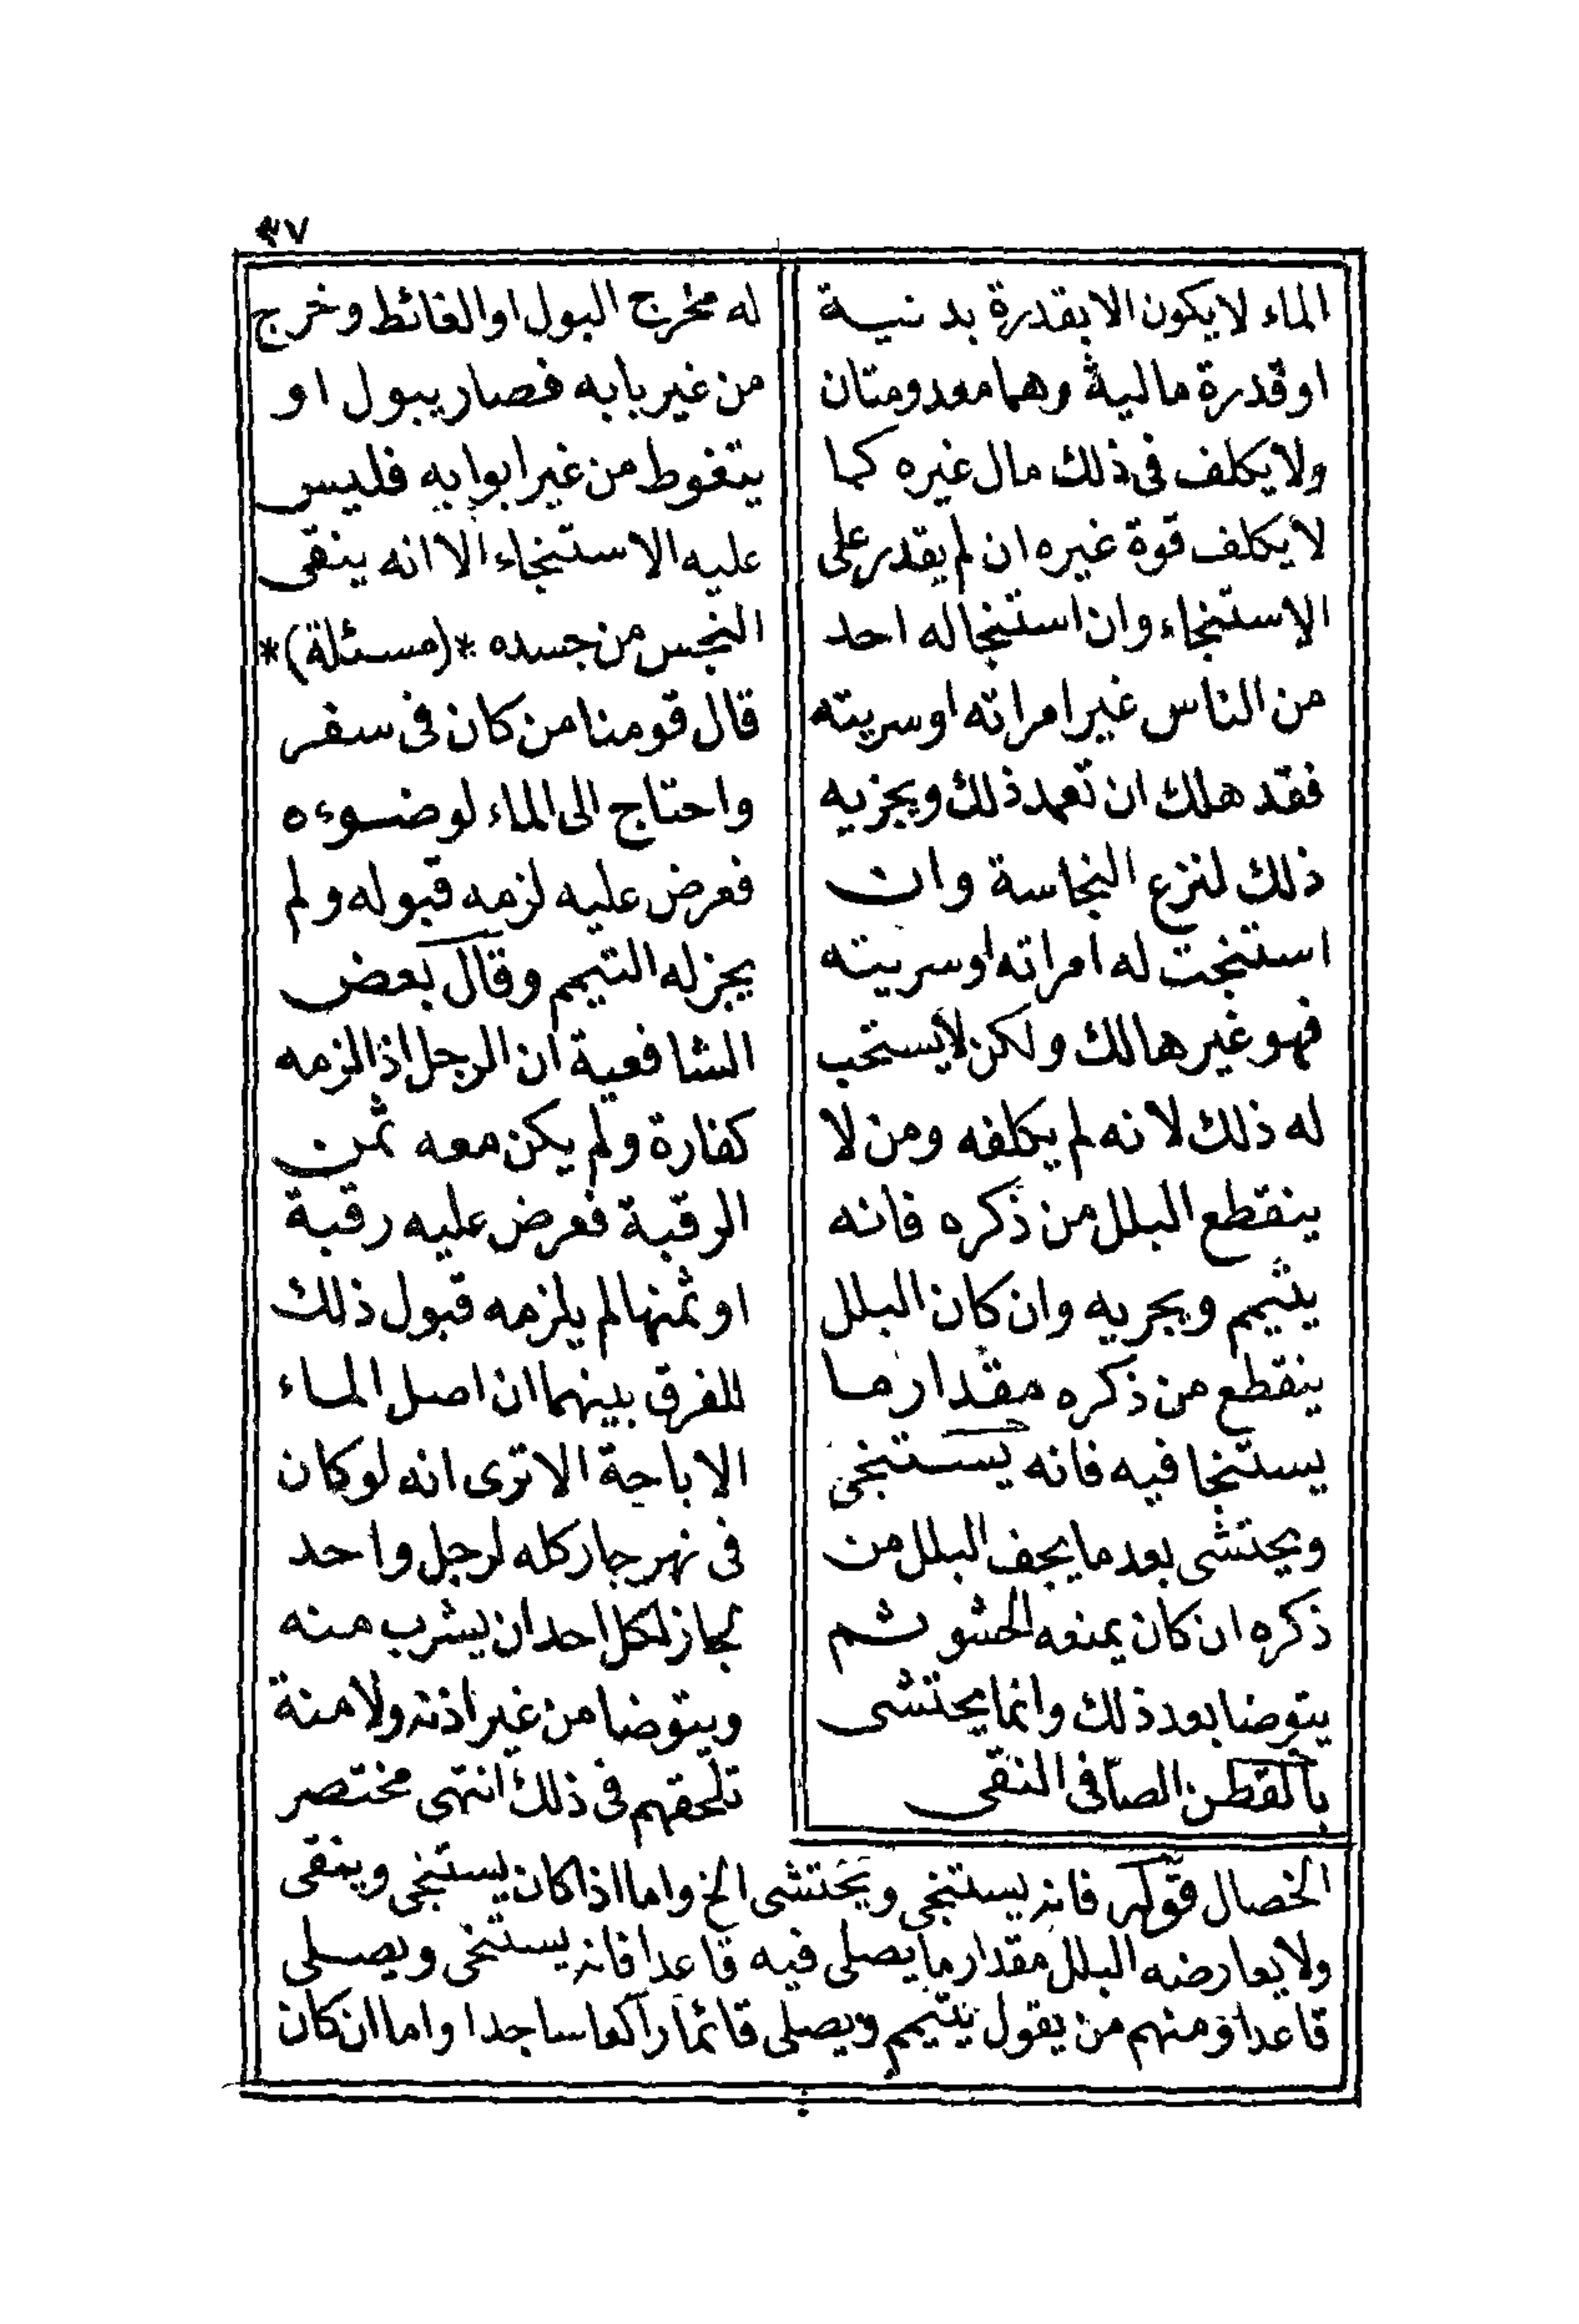 ٣٧
الماء لا يكون الا بقدرة بدنية
او قدرة مالية وهما معدومتان
ولا يكلف فى ذلك مال غيره كما
لا يكلف قوة غيره ان لم يقدر على
الاستنجاء وان استنجا له احد
من الناس غير امراته او سريته
فقد هلك ان تعمد ذلك ويجزيه
ذلك لنزع النجاسة وان
استنجت له امراته او سريته
فهو غير هالك ولكن لا يستحب
له ذلك لانه لم يكلفه ومن لا
ينقطع البلل من ذكره فانه
يتيمم ويجزيه وان كان البلل
ينقطع من ذكره مقدار ما
يستنجا فيه فانه يستنجى
ويحتشى بعد ما يجف البلل من
ذكره ان كان يمنعه الحشو ثم
يتوضا بعد ذلك وانما يحتشى
بالقطن الصافى النقى
له مخرج البول او الغائط وخرج
من غير بابه فصار يبول او
يتغوط من غير ابوابه فليس
عليه الاستنجاء الا انه ينقى
النجس من جسده *(مسئلة)*
قال قومنا من كان فى سفر
واحتاج الى الماء لوضوءه
فعرض عليه لزمه قبوله ولم
يجزله التيمم وقال بعض
الشافعية ان الرجل اذا لزمه
كفارة ولم يكن معه ثمن
الرقبة فعرض عليه رقبة
او ثمنها لم يلزمه قبول ذلك
للفرق بينهما ان اصل الماء
الاباحة الا ترى انه لو كان
فى نهر جار كله لرجل واحد
لجاز لكل احد ان يشرب منه
ويتوضا من غير اذنه ولا منة
تلحقهم فى ذلك انتهى مختصر
الخصال قوله فانه يستنجى ويحتشى الخ واما اذا كان يستنجى وينقى
ولا يعارضه البلل مقدار ما يصلى فيه قاعدا فانه يستنجى ويصلى
قاعدا ومنهم من يقول يتيمم ويصلى قائما راكعا ساجدا واما ان كان